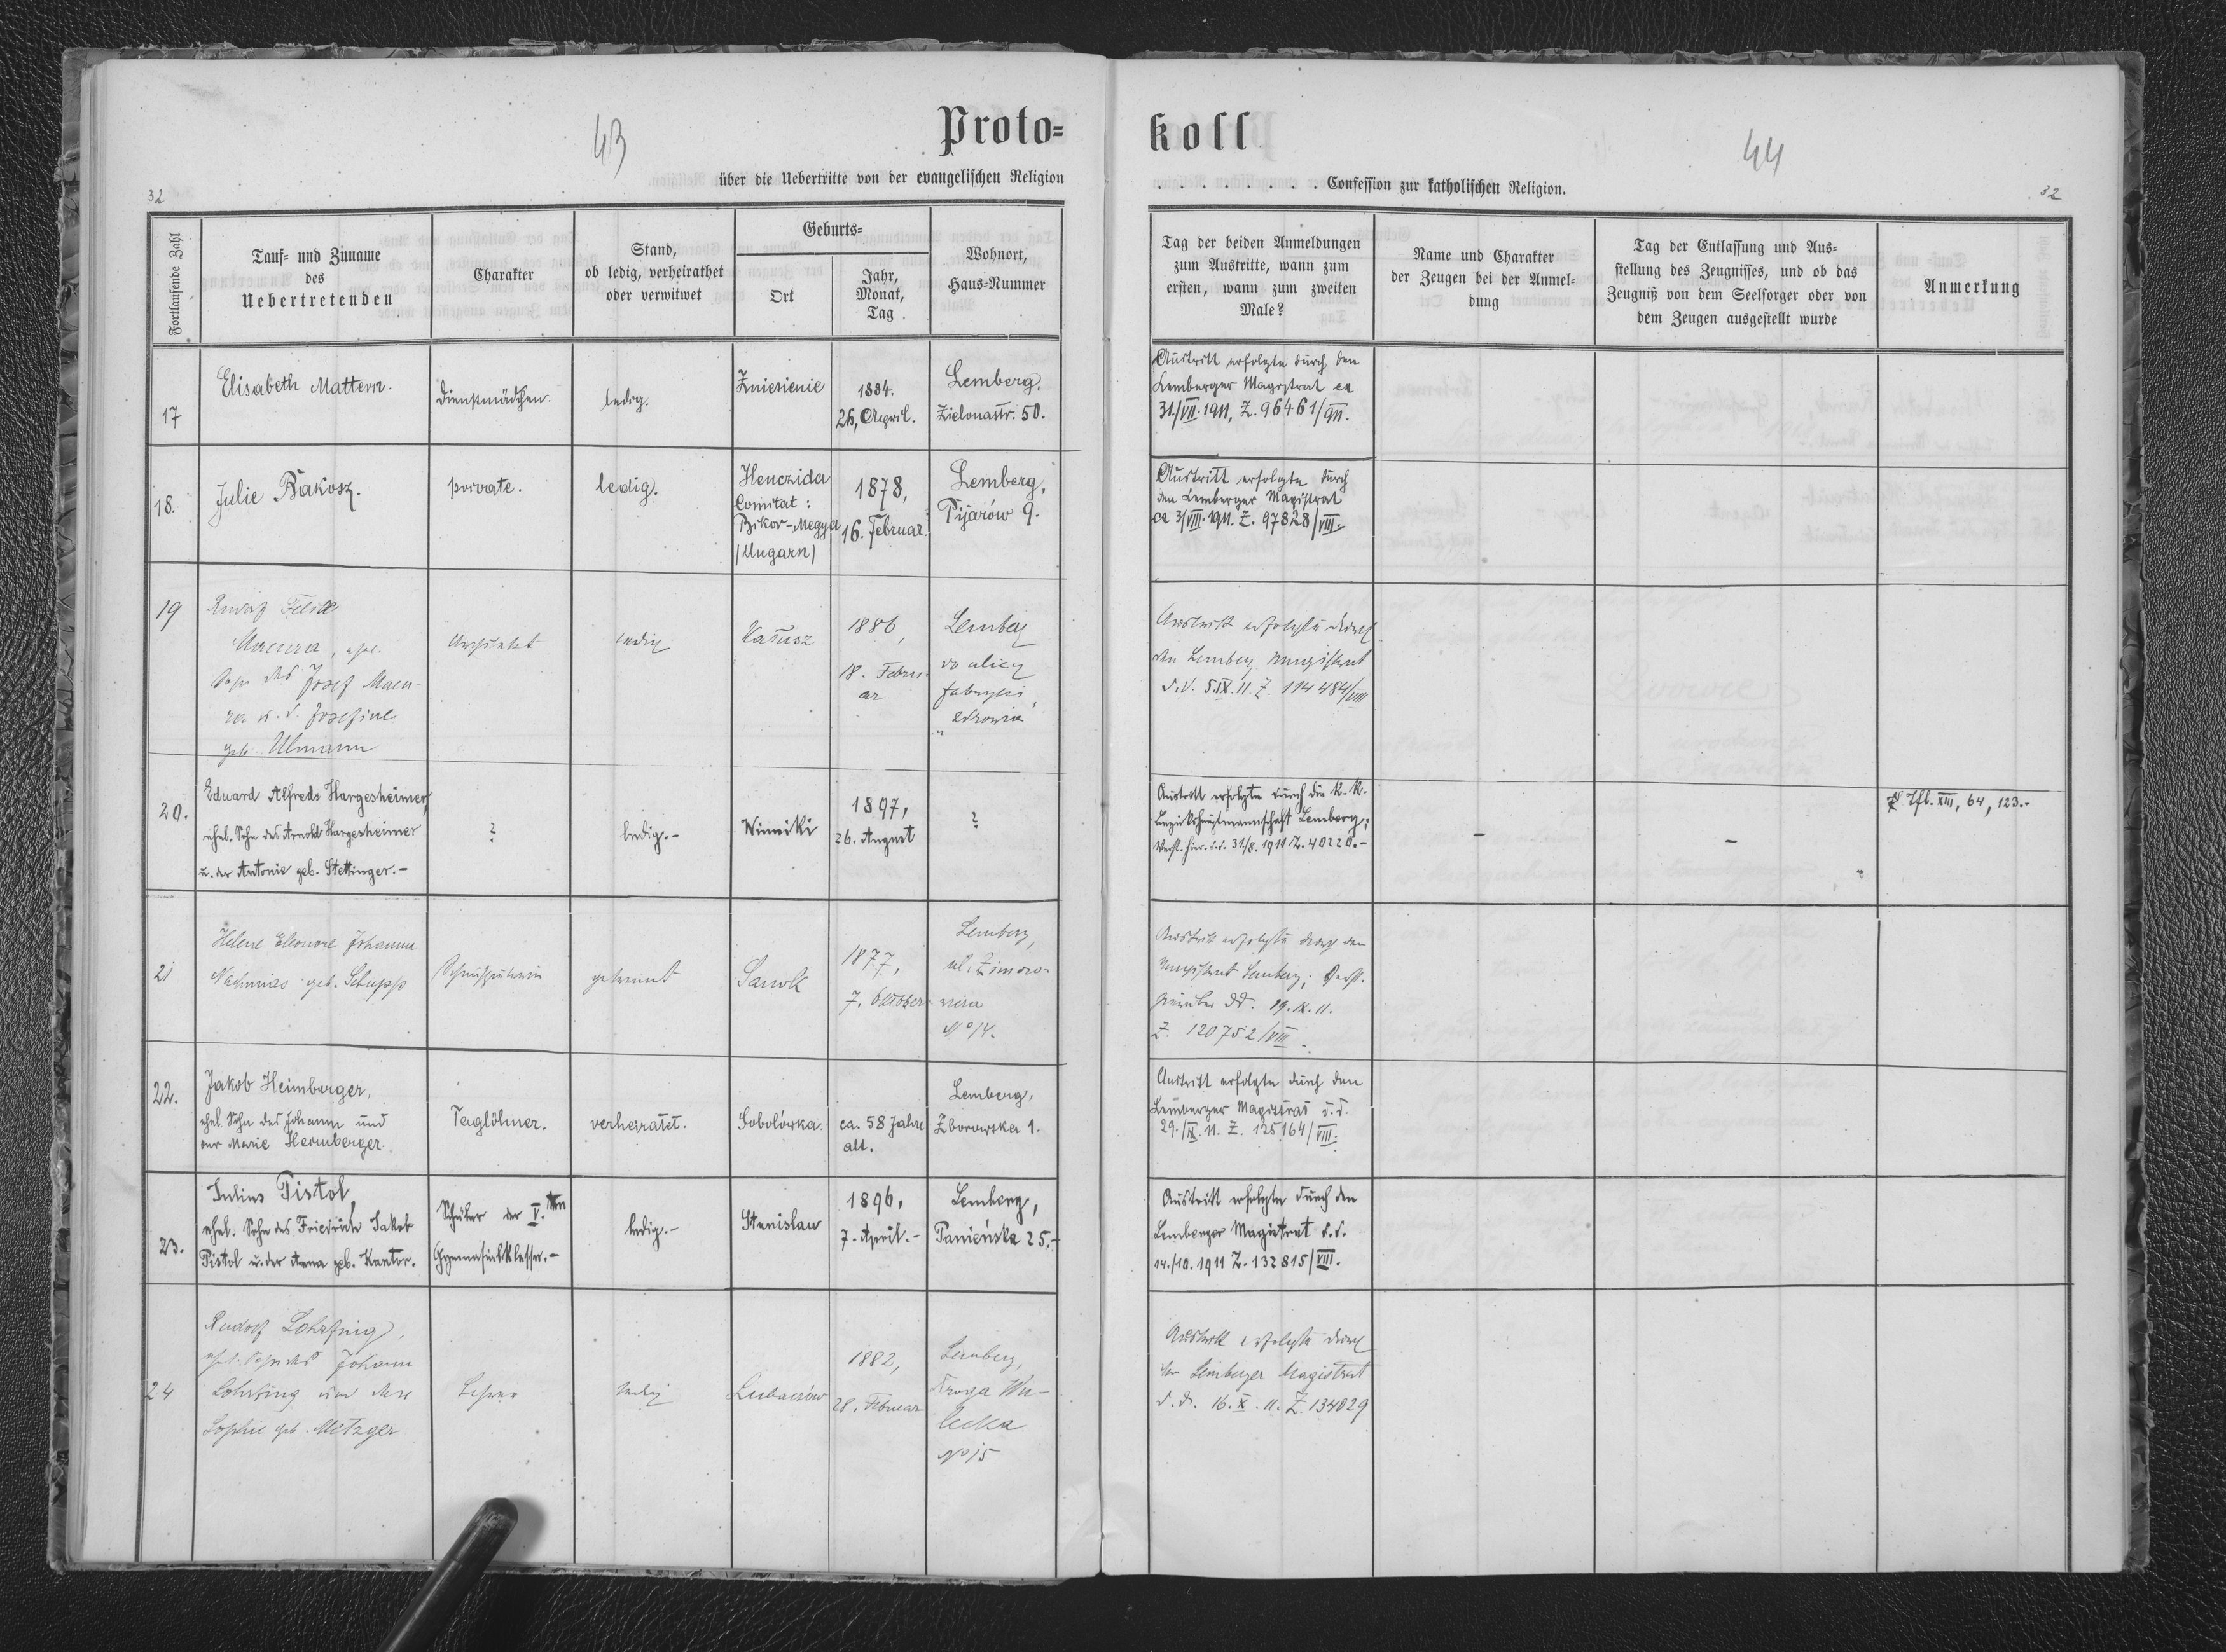 43
Proto-
koll
44
über die Uebertritte von der evangelischen Religion
. . . . . . . . Confession zur katholischen Religion.
32
32
Fortlaufende Zahl
Tauf- und Zuname
des
Uebertretenden
Charakter
Stand,
ob ledig, verheirathet
oder verwitwet
Geburts-
Ort
Jahr,
Monat,
Tag
Wohnort,
Haus-Nummer
Tag der beiden Anmeldungen
zum Austritte, wann zum
ersten, wann zum zweiten
Male?
Name und Charakter
der Zeugen bei der Anmel-
dung
Tag der Entlassung und Aus-
stellung des Zeugnisses, und ob das
Zeugniß von dem Seelsorger oder von
dem Zeugen ausgestellt wurde
Anmerkung
17
Elisabeth Mattern.
Dienstmädchen.
ledig.
Zniesienie
1884.
26, April.
Lemberg,
Zielonastr. 50.
Austritt erfolgte durch den
Lemberger Magistrat
31./VII. 1911, Z. 96461/911.
18.
Julie Bakosz.
private.
ledig.
Henczida
Comitat:
Bikor-Megya
/Ungarn/
1878,
16. Februar.
Lemberg,
Pijarów 9.
Austritt erfolgte durch
den Lemberger Magistrat
3/VIII. 1911. Z. 97828/VIII.
19
Macura, ehel.
Sohn des Josef Macu-
ra u. d. Josefine
geb. Ulmann
ledig
Kałusz
1886,
18. Febru-
ar
Lemberg
ulicy
fabryki
Austritt erfolgte durch
den Lemberg Magistrat
d.d. 5.IX.11. Z. 114484/VIII
20.
Eduard Alfreds Hargesheimer,
ehel. Sohn des Arnold Hargesheimer
u. der Antonie geb. Stettinger.-
?
ledig.-
Winniki
1897,
26. August
?
Austritt erfolgte durch die k. k.
Bezirkshauptmannschaft Lemberg;
Verst. hier. d.d. 31/8. 1911 Z. 40220.-
-
-
Tfb. XIII, 64, 123.-
21
Helene Eleonore Johanna
geb. Schupp
getrennt
Sanok
1877,
7. Oktober
Lemberg,
ul. Zimoro-
wicza
No 14.
Austritt erfolgte durch den
Magistrat Lemberg; Verst.
hierüber dd. 19.IX.11.
Z. 120752/VIII.
22.
Jakob Heimberger,
ehel. Sohn des Johann und
der Marie Heimberger.
Taglöhner.
verheiratet.
Sobolówka.
ca. 58 Jahre
alt.
Lemberg,
Zborowska 1.
Austritt erfolgte durch den
Lemberger Magistrat d.d.
29./IX. 11. Z. 125164/VIII.
23.
Julius Pistol,
ehel. Sohn des Friedrich Jakob
Pistol u. der Anna geb. Kantor.
Schüler der V.ten
Gymnasialklasse.-
ledig.-
Stanislau
1896,
7. April.-
Lemberg,
Panieńska 25.-
Austritt erfolgte durch den
Lemberger Magistrat d.d.
14./10. 1911 Z. 132815/VIII.
24
Rudolf Lohrfing,
ehel. Sohn des Johann
Lohrfing und der
Sophie geb. Metzger
Lehrer
ledig
Lubaczów
1882,
28. Februar
Lemberg,
Droga Wu-
lecka
No 15
Austritt erfolgte durch
den Lemberger Magistrat
d. d. 16. X. 11. Z. 134829